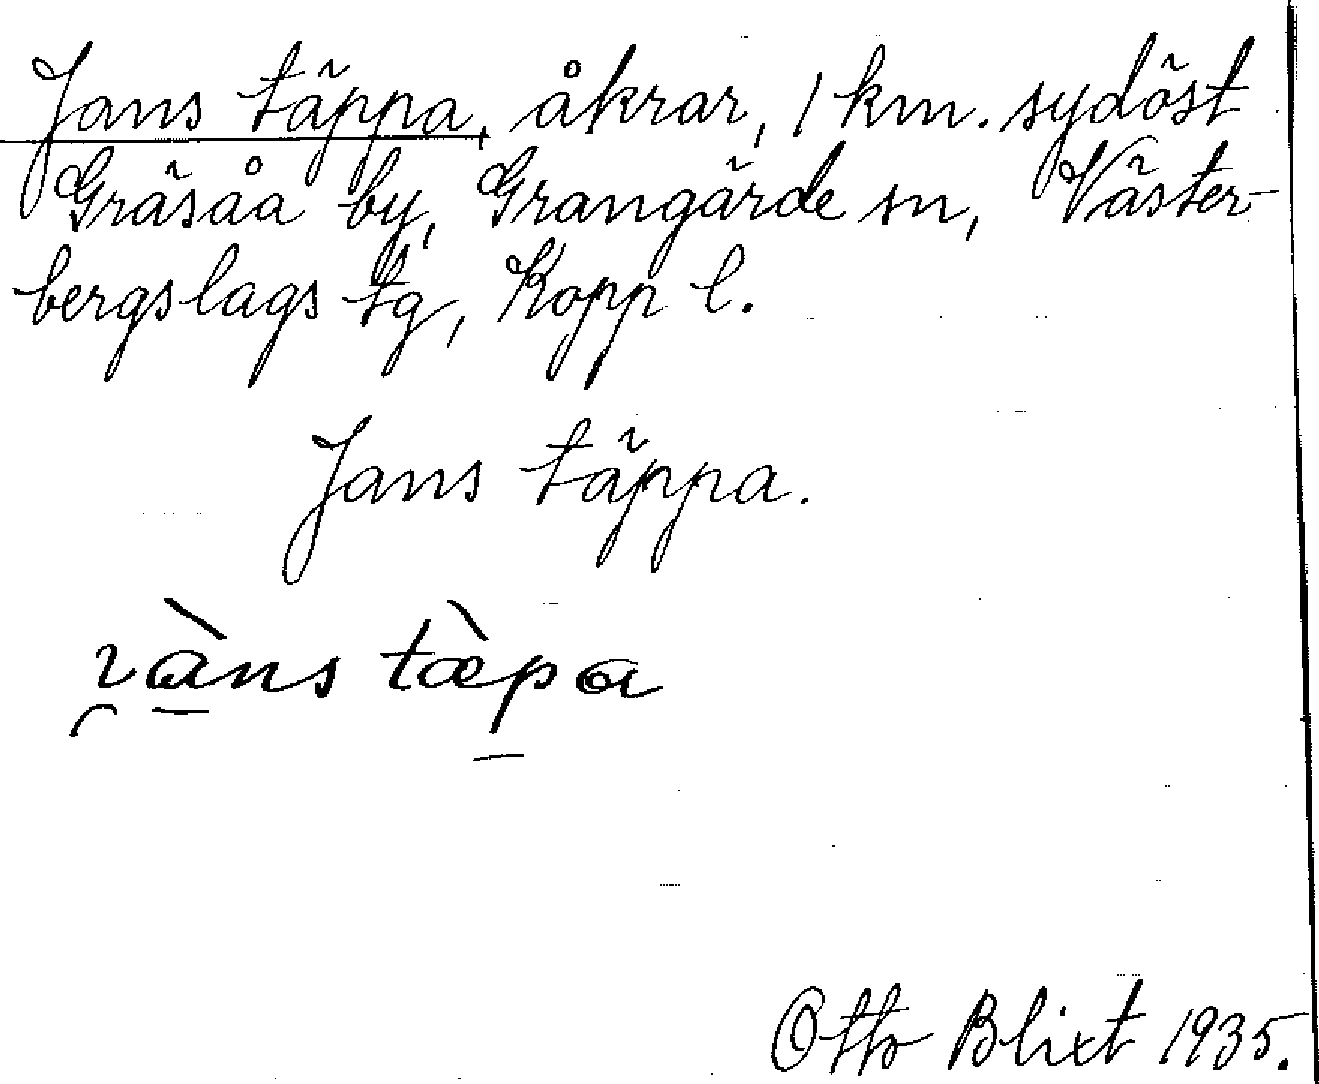 Jans täppa, åkrar, 1 km. sydöst
Gräsåa by, Grangärde sn, Väster-
bergslags tg, Kopp l.
Jans täppa.
ı̯à̱ns tæ̀p̱a
Otto Blixt 1935.